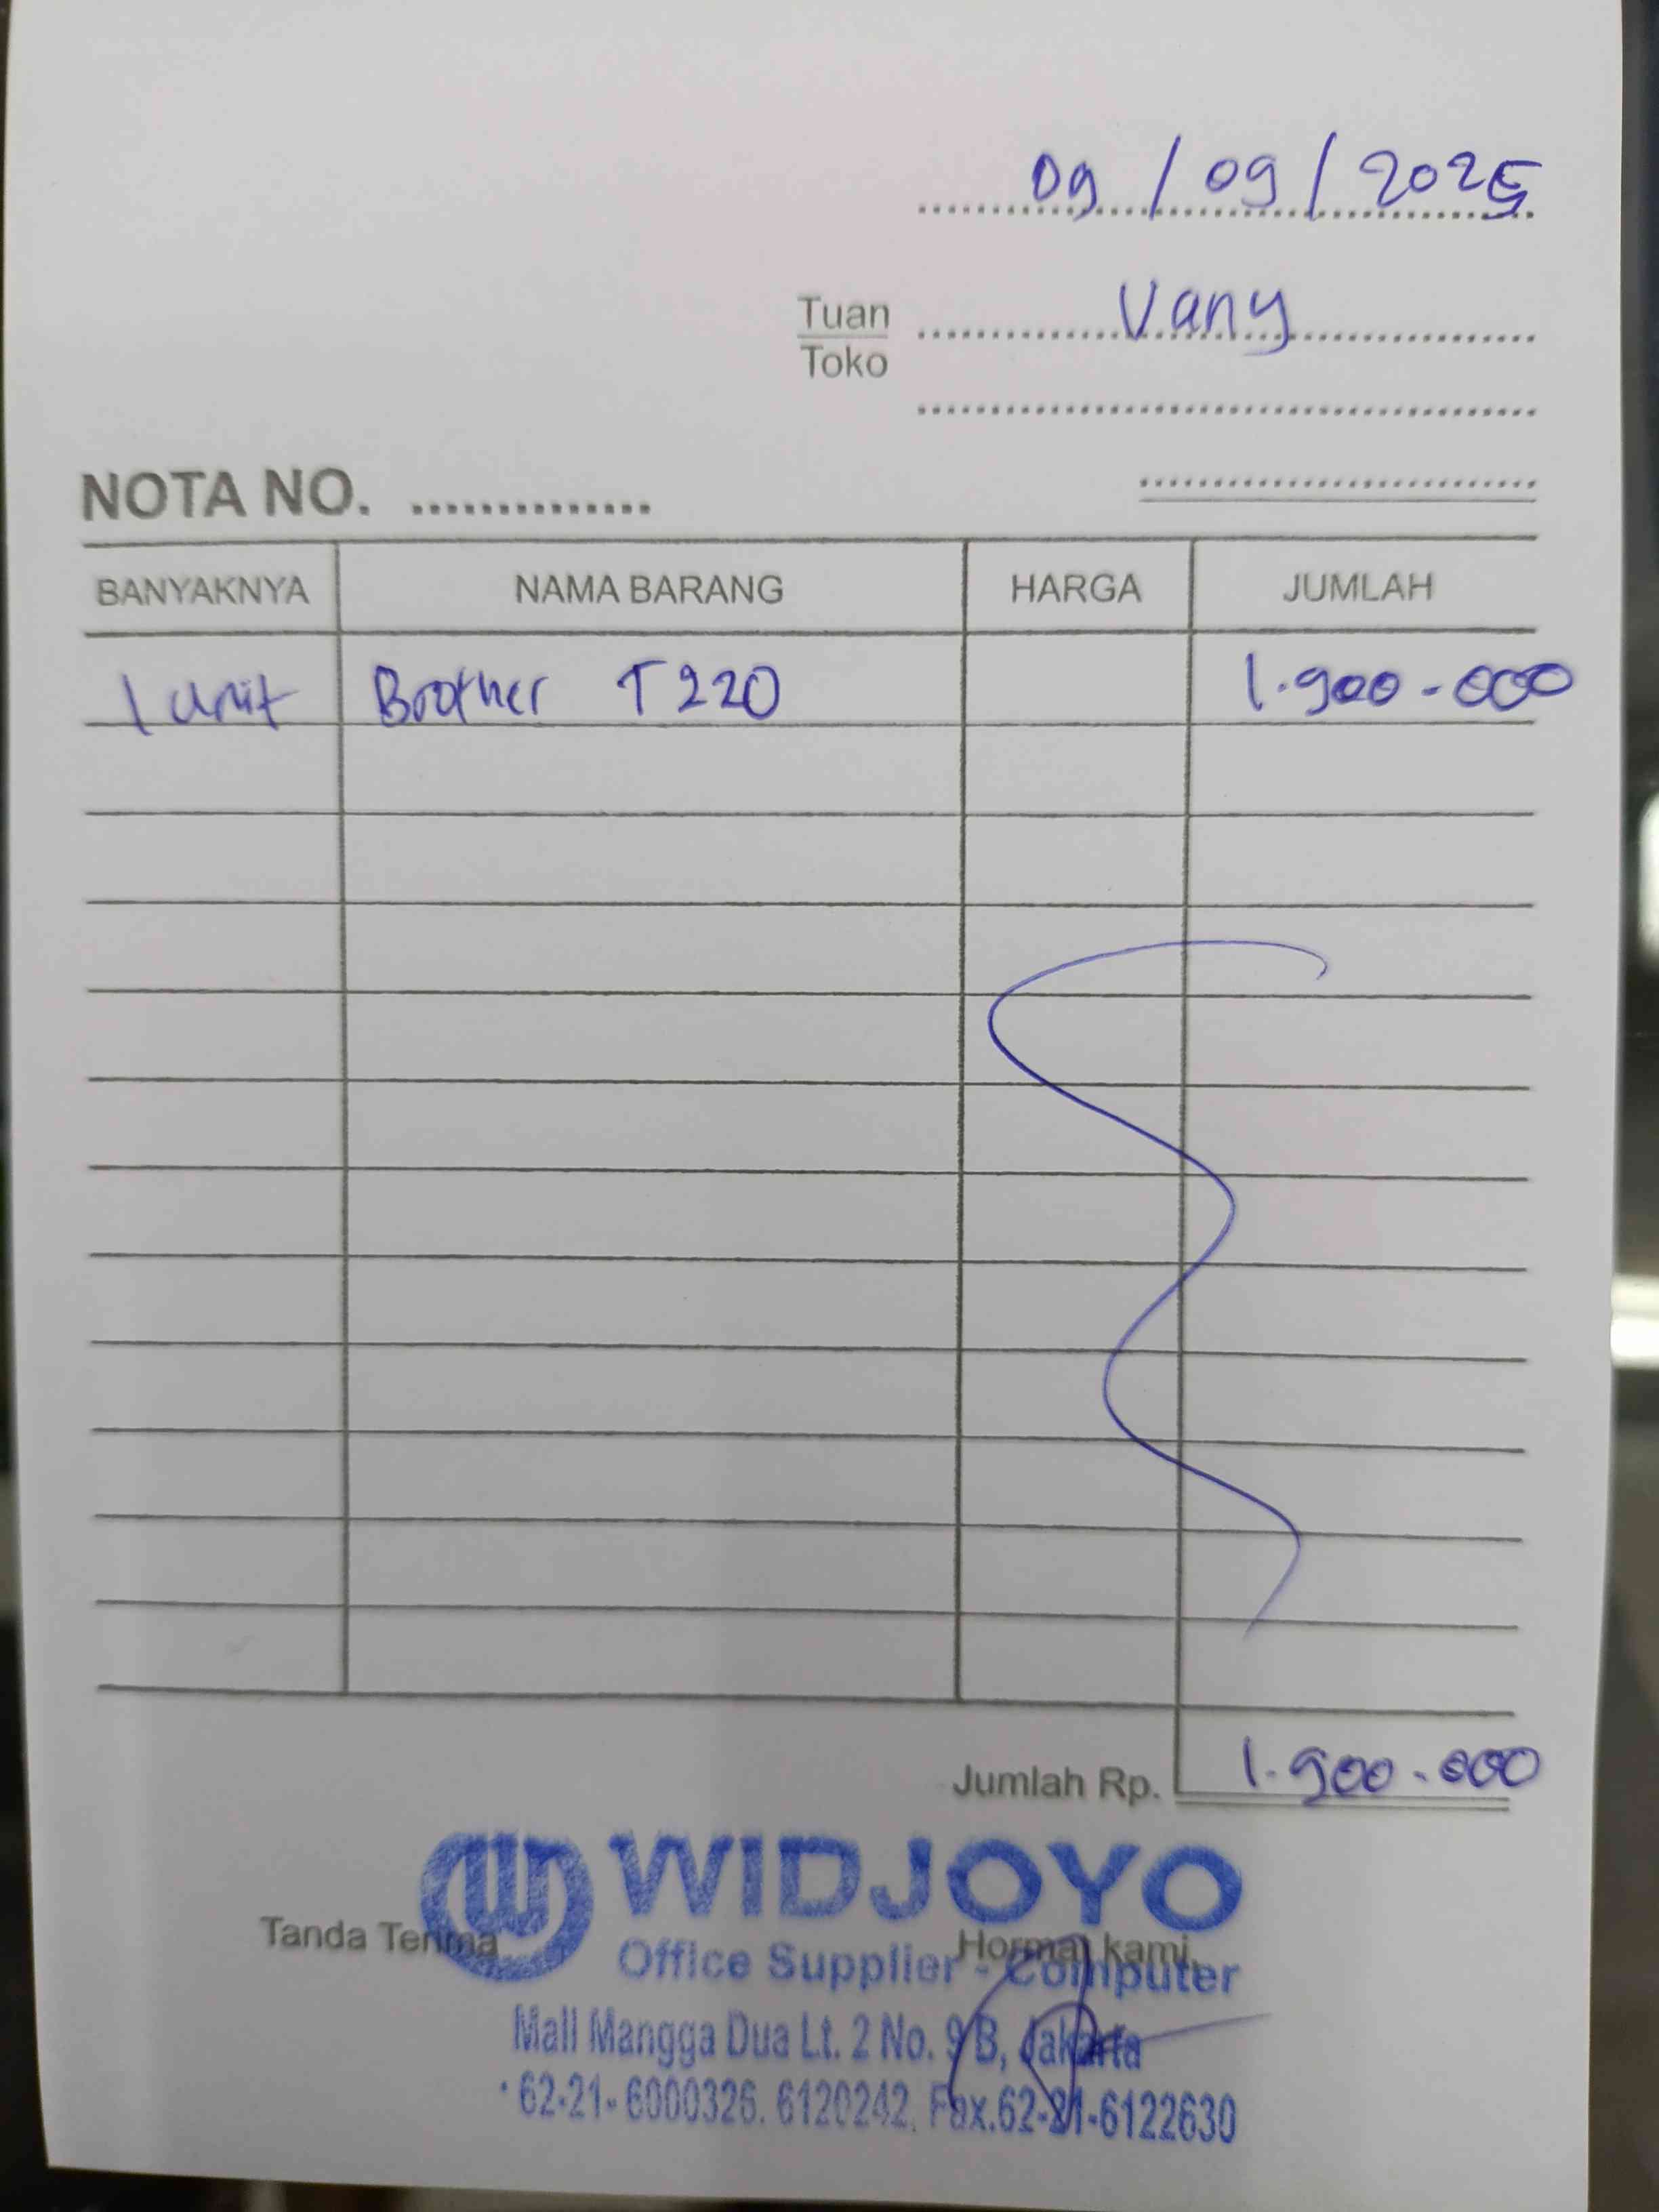 09 / 09 / 2025
Tuan Vany
Toko
NOTA NO. ..............
BANYAKNYA NAMA BARANG HARGA JUMLAH
1 unit Brother T220 1.900.000
Jumlah Rp. 1.900.000
WIDJOYO
Tanda Terima Hormat kami,
Office Supplier - Computer
Mall Mangga Dua Lt. 2 No. 9 B, Jakarta
62-21- 6000326. 6120242. Fax.62-21-6122630